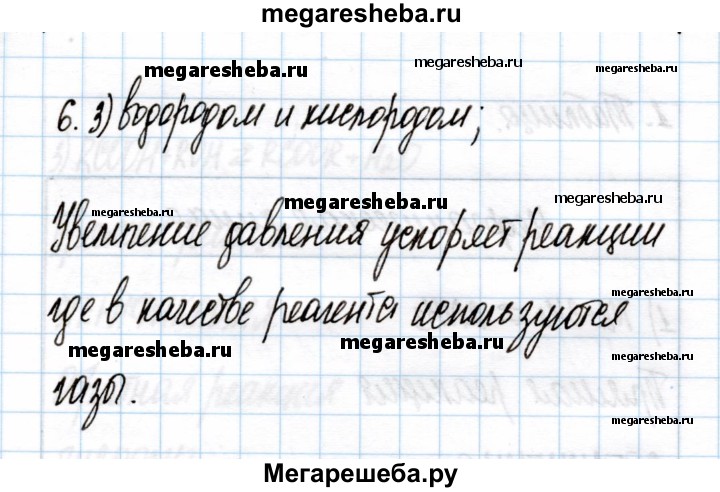 megaresheba.ru
megaresheba.ru megaresheba.ru
6. 3) водородом и кислородом;
megaresheba.ru megaresheba.ru megaresheba.ru
Увеличение давления ускоряет реакции
megaresheba.ru
где в качестве реагента используются
megaresheba.ru megaresheba.ru
газы.
megaresheba.ru
Мегарешеба.ру